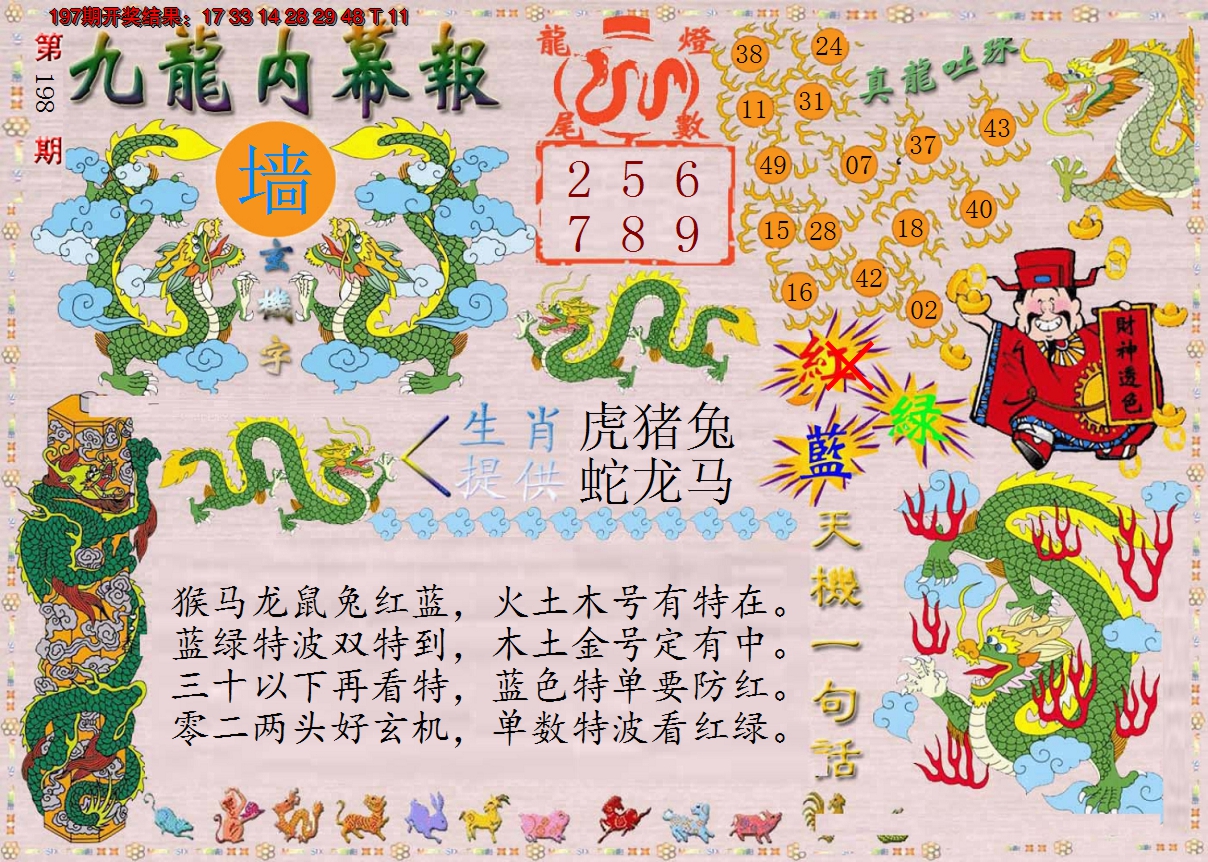 197期开奖结果：17 33 14 28 29 48 T 11
第198期
九龍内幕報
墙
玄機字
龍燈
尾數
2 5 6
7 8 9
38
24
11
31
49
07
37
43
15
28
18
40
16
42
02
真龍吐珠
財神透色
紅
綠
藍
生肖 虎猪兔
提供 蛇龙马
天機一句話
猴马龙鼠兔红蓝，火土木号有特在。
蓝绿特波双特到，木土金号定有中。
三十以下再看特，蓝色特单要防红。
零二两头好玄机，单数特波看红绿。